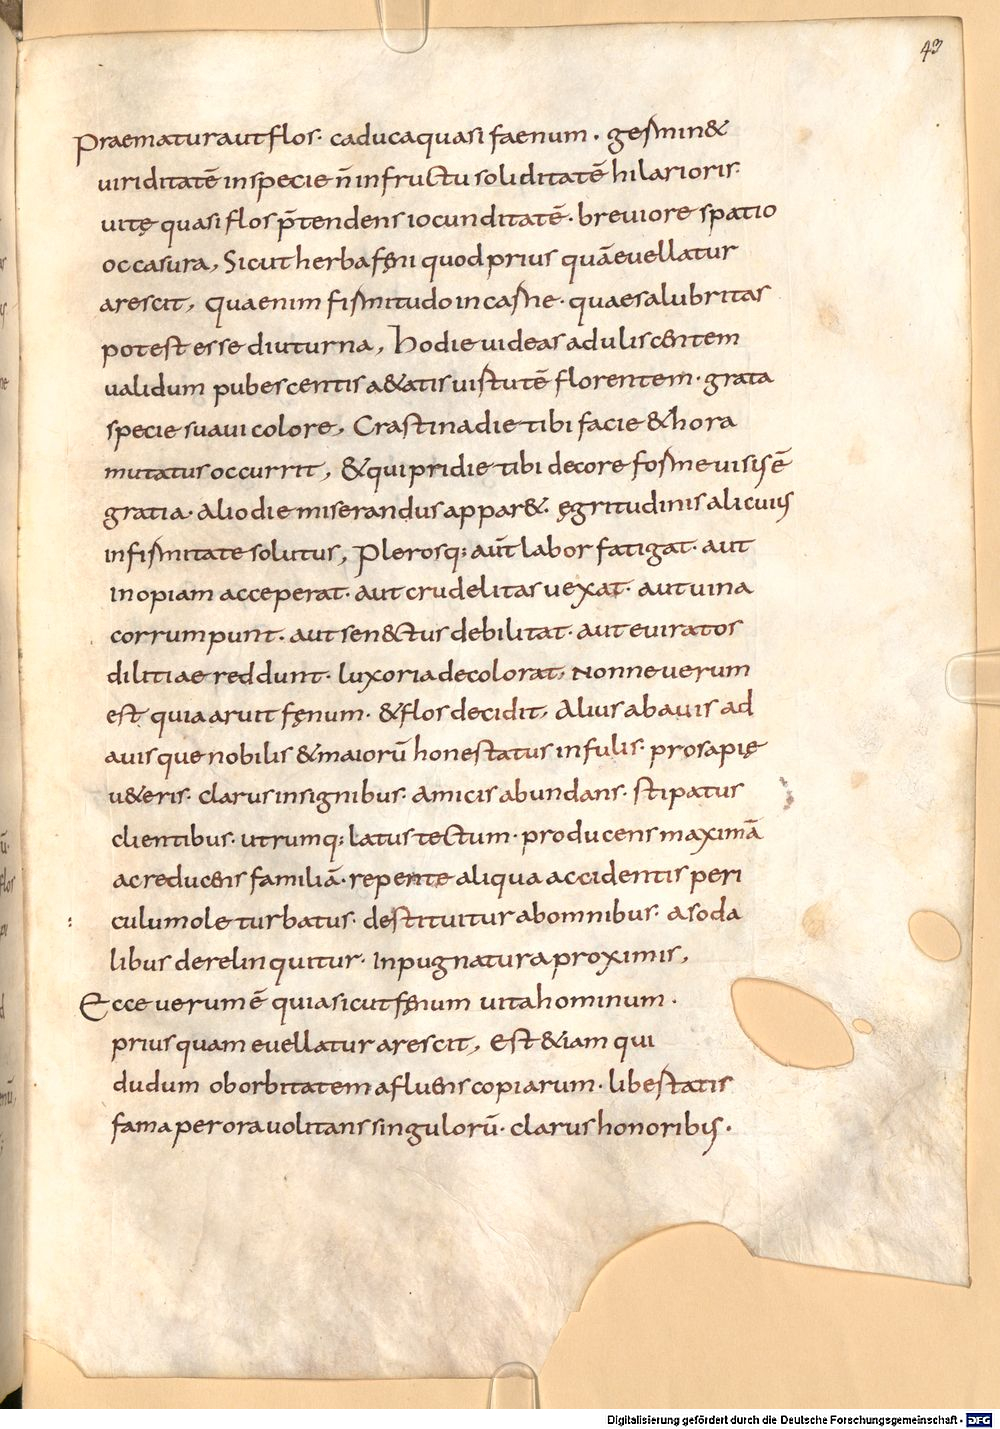 43
Praematura ut flos· caduca quasi faenum· germin&
uiriditatē in specie n̄ in fructu soliditatē hilarioris·
uitę quasi flos p̄tendens iocunditatē· breuiore spatio
occasura, Sicut herba fęni quod prius quā euellatur
arescit, quae enim firmitudo in carne· quae salubritas
potest esse diuturna, hodie uideas aduliscentem
ualidum pubescentis a&atis uirtutē florentem· grata
specie suaui colore, Crastina die tibi facie & hora
mutatus occurrit, & qui pridie tibi decore forme uisus ē
gratia· alio die miserandus appar&· ęgritudinis alicuius
infirmitate solutus, Plerosq; aūt labor fatigat· aut
inopiam acceperat· aut crudelitas uexat· aut uina
corrumpunt· aut sen&ctus debilitat· aut euiratos
dilitiae reddunt· luxoria decolorat, Nonne uerum
est quia aruit fęnum· & flos decidit, Alius abauis ad
auisque nobilis & maiorū honestatus infulis· prosapię
u&eris· clarus insignibus· amicis abundans· stipatus
clientibus· utrumq; latus tectum· producens maximā
ac reducens familiā· repente aliqua accidentis peri
culu mole turbatus· destituitur ab omnibus· a soda
libus derelinquitur· inpugnatur a proximis,
Ecce uerum ē quia sicut fęnum uita hominum·
prius quam euellatur arescit, Est &iam qui
dudum ob orbitatem afluens copiarum· libertatis
fama per ora uolitans singulorū· clarus honoribus·
Digitalisierung gefördert durch die Deutsche Forschungsgemeinschaft - DFG